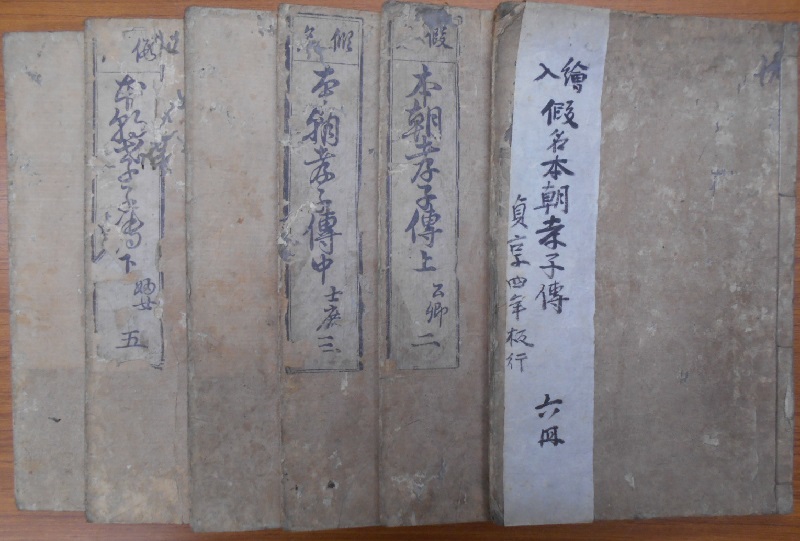 繪入
假名本朝孝子傳
貞享四年板行
六冊
假
本朝孝子傳上
公卿
二
假名
本朝孝子傳中
士庶
三
假
本朝孝子傳下
婦女
五